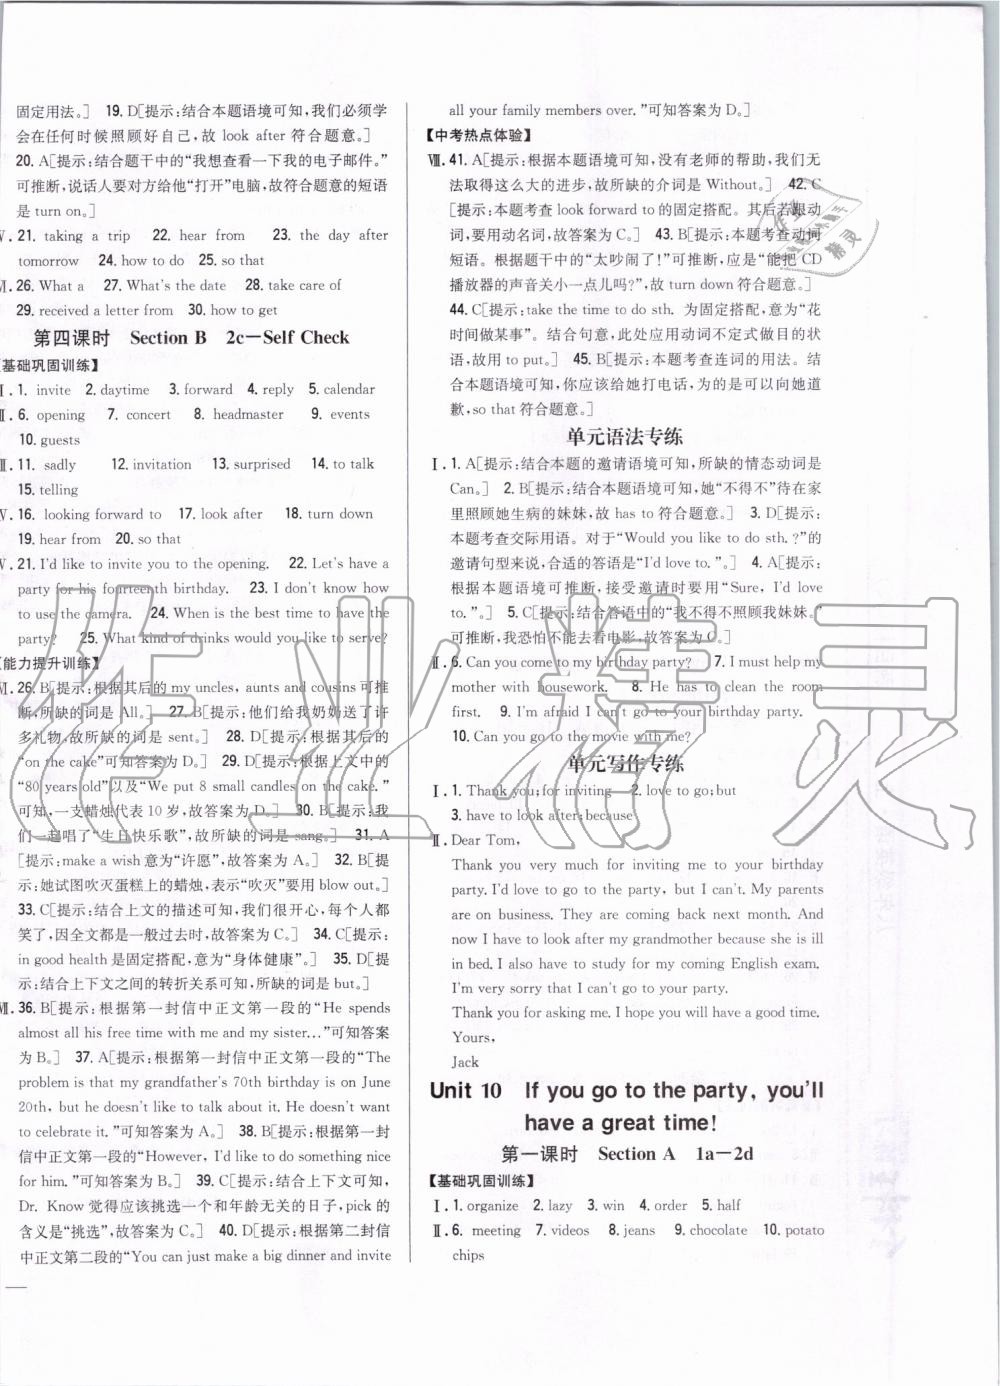 固定用法。] 19. D[提示:结合本题语境可知,我们必须学
会在任何时候照顾好自己,故 look after 符合题意。]
20. A[提示:结合题干中的“我想查看一下我的电子邮件。”
可推断,说话人要对方给他“打开”电脑,故符合题意的短语
是 turn on。]
21. taking a trip 22. hear from 23. the day after
tomorrow 24. how to do 25. so that
26. What a 27. What's the date 28. take care of
29. received a letter from 30. how to get
第四课时 Section B 2c—Self Check
【基础巩固训练】
Ⅰ. 1. invite 2. daytime 3. forward 4. reply 5. calendar
Ⅱ. 6. opening 7. concert 8. headmaster 9. events
10. guests
Ⅲ. 11. sadly 12. invitation 13. surprised 14. to talk
15. telling
Ⅳ. 16. looking forward to 17. look after 18. turn down
19. hear from 20. so that
Ⅴ. 21. I'd like to invite you to the opening. 22. Let's have a
party for his fourteenth birthday. 23. I don't know how
to use the camera. 24. When is the best time to have the
party? 25. What kind of drinks would you like to serve?
【能力提升训练】
Ⅵ. 26. B[提示:根据其后的 my uncles, aunts and cousins 可推
断,所缺的词是 All。] 27. B[提示:他们给我奶奶送了许
多礼物,故所缺的词是 sent。] 28. D[提示:根据其后的
“on the cake”可知答案为 D。] 29. D[提示:根据上文中的
“80 years old”以及“We put 8 small candles on the cake.”
可知,一支蜡烛代表 10 岁,故答案为 D。] 30. B[提示:我
们一起唱了“生日快乐歌”,故所缺的词是 sang。] 31. A
[提示:make a wish 意为“许愿”,故答案为 A。] 32. B[提
示:她试图吹灭蛋糕上的蜡烛,表示“吹灭”要用 blow out。]
33. C[提示:结合上文的描述可知,我们很开心,每个人都
笑了,因全文都是一般过去时,故答案为 C。] 34. C[提示:
in good health 是固定搭配,意为“身体健康”。] 35. D[提
示:结合上下文之间的转折关系可知,所缺的词是 but。]
Ⅶ. 36. B[提示:根据第一封信中正文第一段的“He spends
almost all his free time with me and my sister...”可知答案
为 B。] 37. A[提示:根据第一封信中正文第一段的“The
problem is that my grandfather's 70th birthday is on June
20th, but he doesn't like to talk about it. He doesn't want
to celebrate it.”可知答案为 A。] 38. B[提示:根据第一封
信中正文第一段的“However, I'd like to do something nice
for him.”可知答案为 B。] 39. C[提示:结合上下文可知,
Dr. Know 觉得应该挑选一个和年龄无关的日子,pick 的
含义是“挑选”,故答案为 C。] 40. D[提示:根据第二封信
中正文第二段的“You can just make a big dinner and invite
all your family members over.”可知答案为 D。]
【中考热点体验】
Ⅷ. 41. A[提示:根据本题语境可知,没有老师的帮助,我们无
法取得这么大的进步,故所缺的介词是 Without。] 42. C
[提示:本题考查 look forward to 的固定搭配。其后若跟动
词,要用动名词,故答案为 C。] 43. B[提示:本题考查动词
短语。根据题干中的“太吵闹了!”可推断,应是“能把 CD
播放器的声音关小一点儿吗?”,故 turn down 符合题意。]
44. C[提示:take the time to do sth. 为固定搭配,意为“花
时间做某事”。结合句意,此处应用动词不定式做目的状
语,故用 to put。] 45. B[提示:本题考查连词的用法。结
合本题语境可知,你应该给她打电话,为的是可以向她道
歉,so that 符合题意。]
单元语法专练
Ⅰ. 1. A[提示:结合本题的邀请语境可知,所缺的情态动词是
Can。] 2. B[提示:结合本题语境可知,她“不得不”待在家
里照顾她生病的妹妹,故 has to 符合题意。] 3. D[提示:
本题考查交际用语。对于“Would you like to do sth.?”的
邀请句型来说,合适的答语是“I'd love to.”。] 4. A[提示:
根据本题语境可推断,接受邀请时要用“Sure, I'd love
to.”。] 5. C[提示:结合答语中的“我不得不照顾我妹妹。”
可推断,我恐怕不能去看电影,故答案为 C。]
Ⅱ. 6. Can you come to my birthday party? 7. I must help my
mother with housework. 8. He has to clean the room
first. 9. I'm afraid I can't go to your birthday party.
10. Can you go to the movie with me?
单元写作专练
Ⅰ. 1. Thank you;for inviting 2. love to go;but
3. have to look after;because
Ⅱ. Dear Tom,
Thank you very much for inviting me to your birthday
party. I'd love to go to the party, but I can't. My parents
are on business. They are coming back next month. And
now I have to look after my grandmother because she is ill
in bed. I also have to study for my coming English exam.
I'm very sorry that I can't go to your party.
Thank you for asking me. I hope you will have a good time.
Yours,
Jack
Unit 10 If you go to the party, you'll
have a great time!
第一课时 Section A 1a—2d
【基础巩固训练】
Ⅰ. 1. organize 2. lazy 3. win 4. order 5. half
Ⅱ. 6. meeting 7. videos 8. jeans 9. chocolate 10. potato
chips
作业精灵